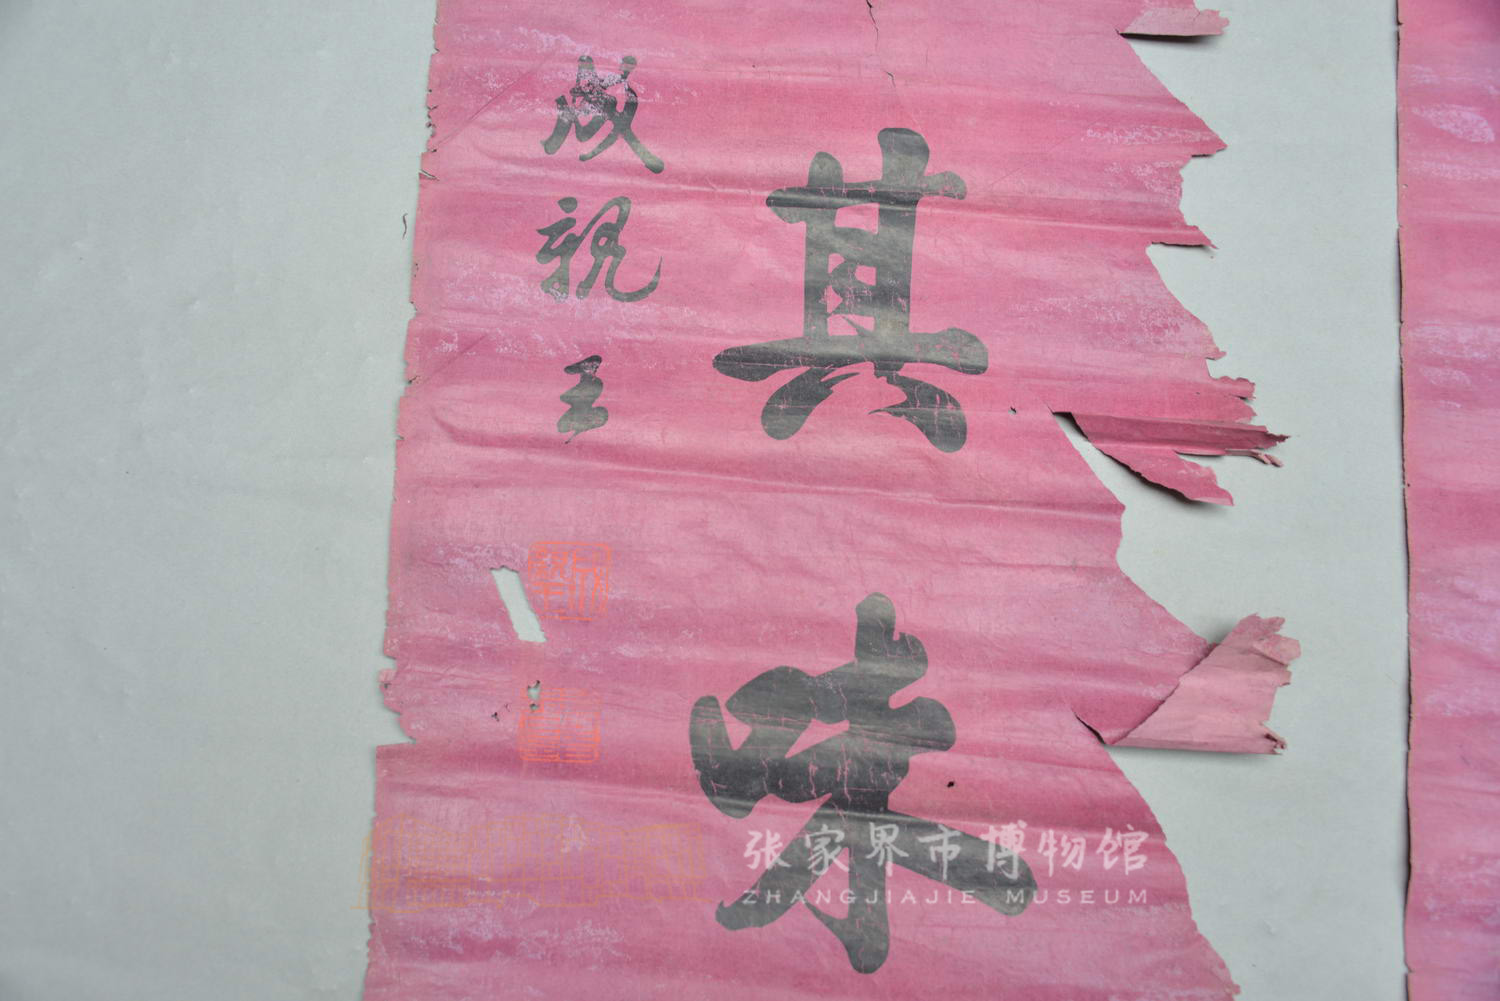 其味
成親王
张家界市博物馆
ZHANGJIAJIE MUSEUM